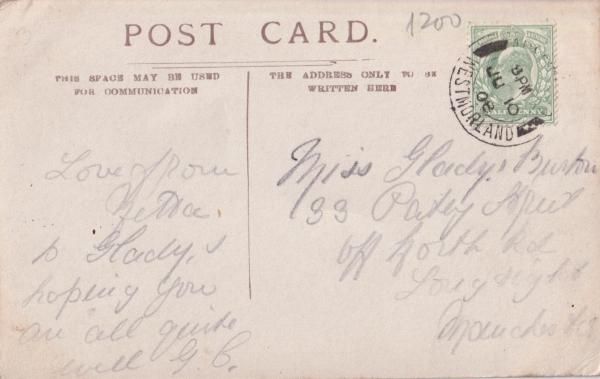 1200
POST CARD.
THIS SPACE MAY BE USED
FOR COMMUNICATION
THE ADDRESS ONLY TO BE
WRITTEN HERE
WESTMORLAND
9 PM
JU 10
08
HALFPENNY
Love from
Netta
to Gladys
hoping you
are all quite
well G.C.
Miss Gladys Burton
33 Patey Street
off North Rd
Longsight
Manchester